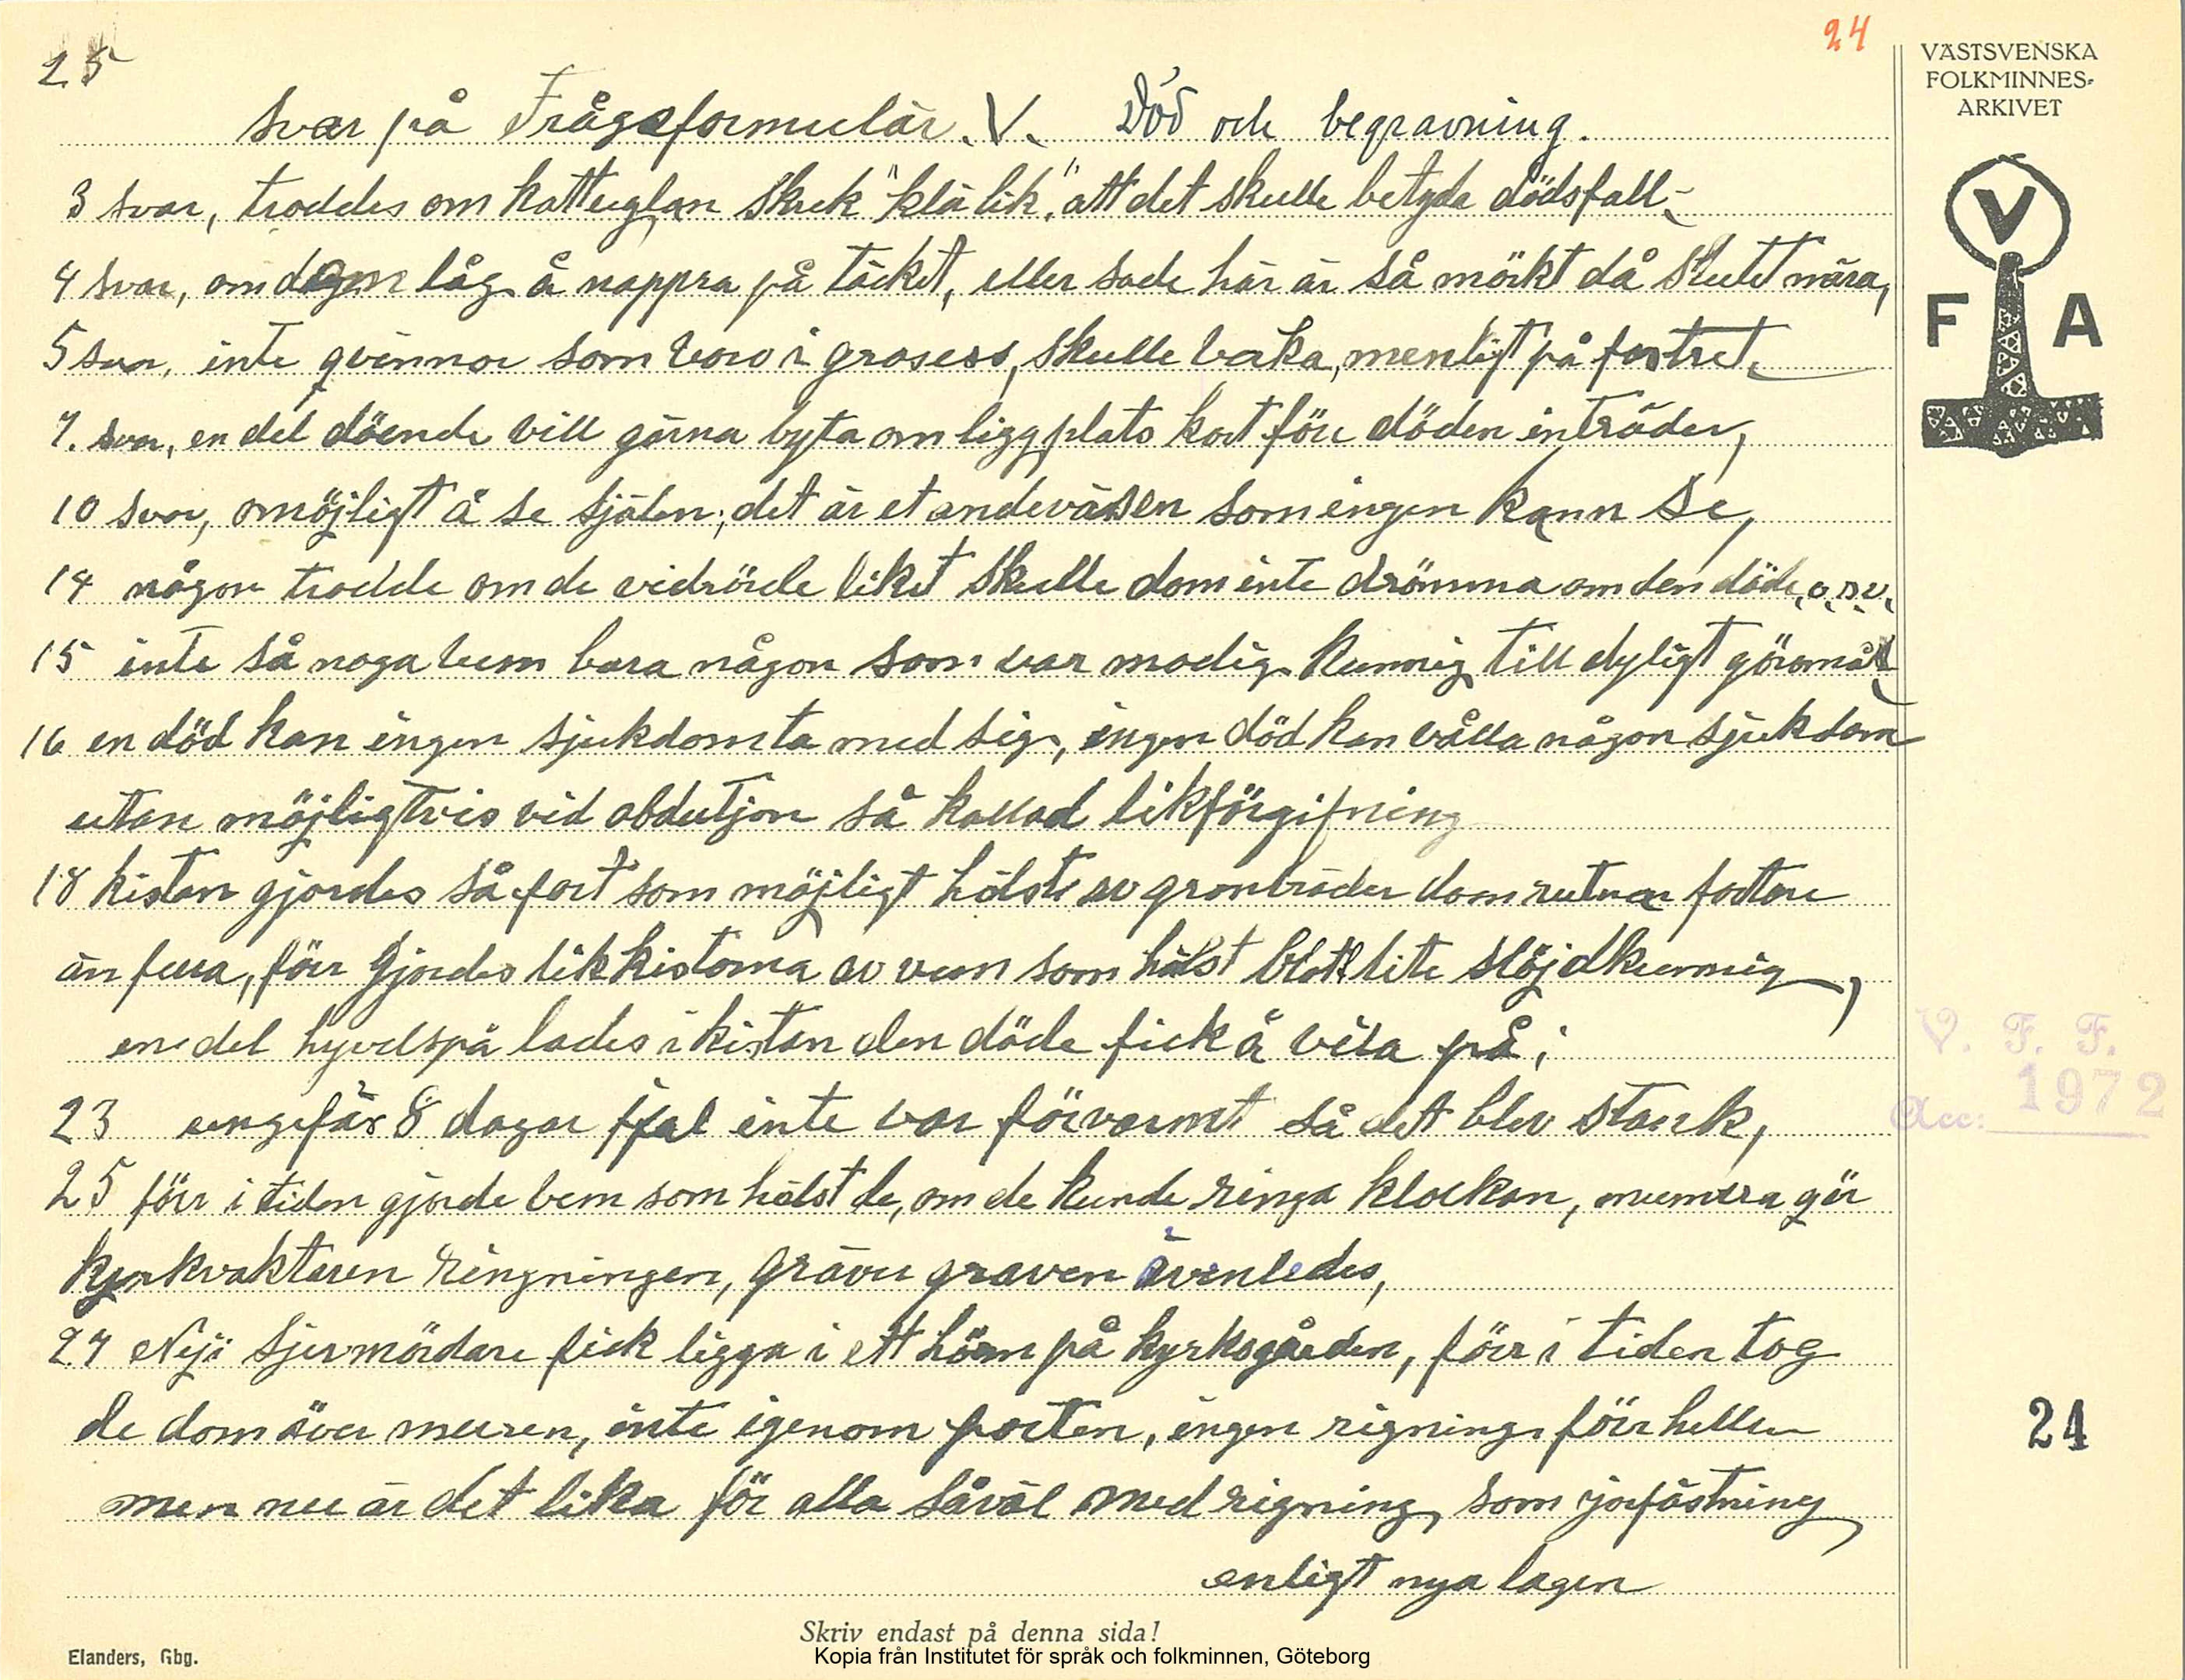 25
24
VÄSTSVENSKA
FOLKMINNES-
ARKIVET
V
F A
Svar på Frågeformulär. V. Död och begravning.
3 svar, troddes om kattuglan skrek "klä lik," att det skulle betyda dödsfall,
4 svar, om dom låg å nappra på täcket, eller sade här är så mörkt då slutet nära,
5 svar, inte qvinnor som voro i grosess, skulle värka, menligt på fostret,
7. svar, en del döende vill gärna byta om liggplats kort förr döden inträder,
10 svar, omöjligt å se själen, det är et andeväsen som ingen kann se,
14 någon trodde om de vidrörde liket skulle dom inte drömma om den döde, o.s.v.
15 inte så noga vem bara någon som var modig kunnig till dyligt göromål,
16 en död kan ingen sjukdom ta med sig, ingen död kan vålla någon sjukdom
utan möjligtvis vid obdutjon så kallad likförgifning
18 kistan gjordes så fort som möjligt hälst av granbräder dom rutnar fortare
än fura, förr gjordes likkistorna av vem som hälst blott lite slöjdkunnig,
en del hyvelspå lades i kistan den döde fick å vila på,
23 ungefär 8 dagar ifal inte var förvarmt så det blev stank,
25 förr i tiden gjorde vem som hälst de, om de kunde ringa klockan, numera gör
kyrkvaktaren ringningen, gräver graven ävenledes,
27 Nej: sjevmördare fick ligga i ett hörn på kyrkogården, förr i tiden tog
de dom över muren, inte igenom porten, ingen rigning förr heller
men nu är det lika för alla såväl med rigning, som jorfästning,
enligt nya lagen
V. F. F.
Acc: 1972
24
Skriv endast på denna sida!
Elanders, Gbg.
Kopia från Institutet för språk och folkminnen, Göteborg